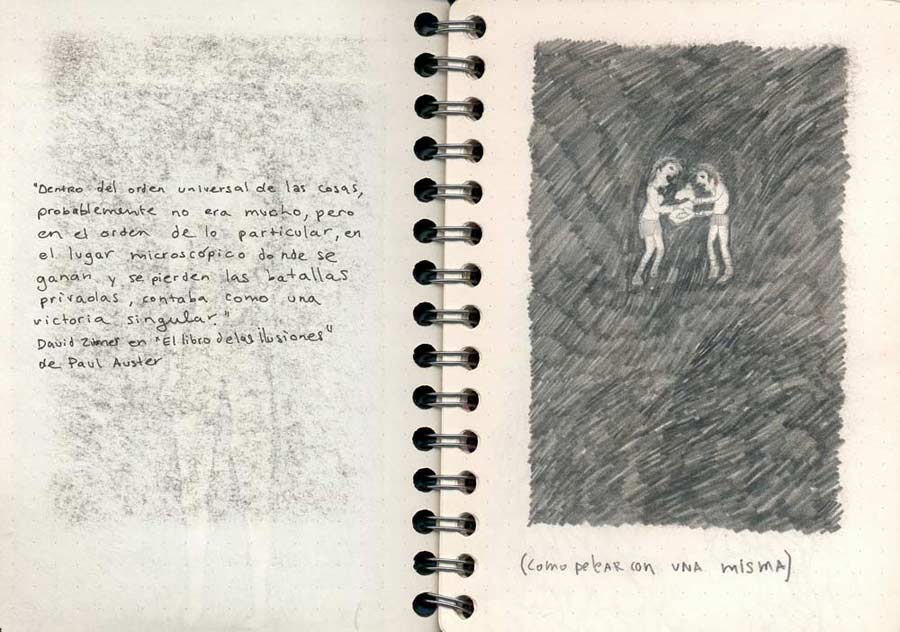 "Dentro del orden universal de las cosas,
probablemente no era mucho, pero
en el orden de lo particular, en
el lugar microscópico donde se
ganan y se pierden las batallas
privadas, contaba como una
victoria singular."
David Zimmer en "El libro de las ilusiones"
de Paul Auster
(como pelear con UNA MISMA)